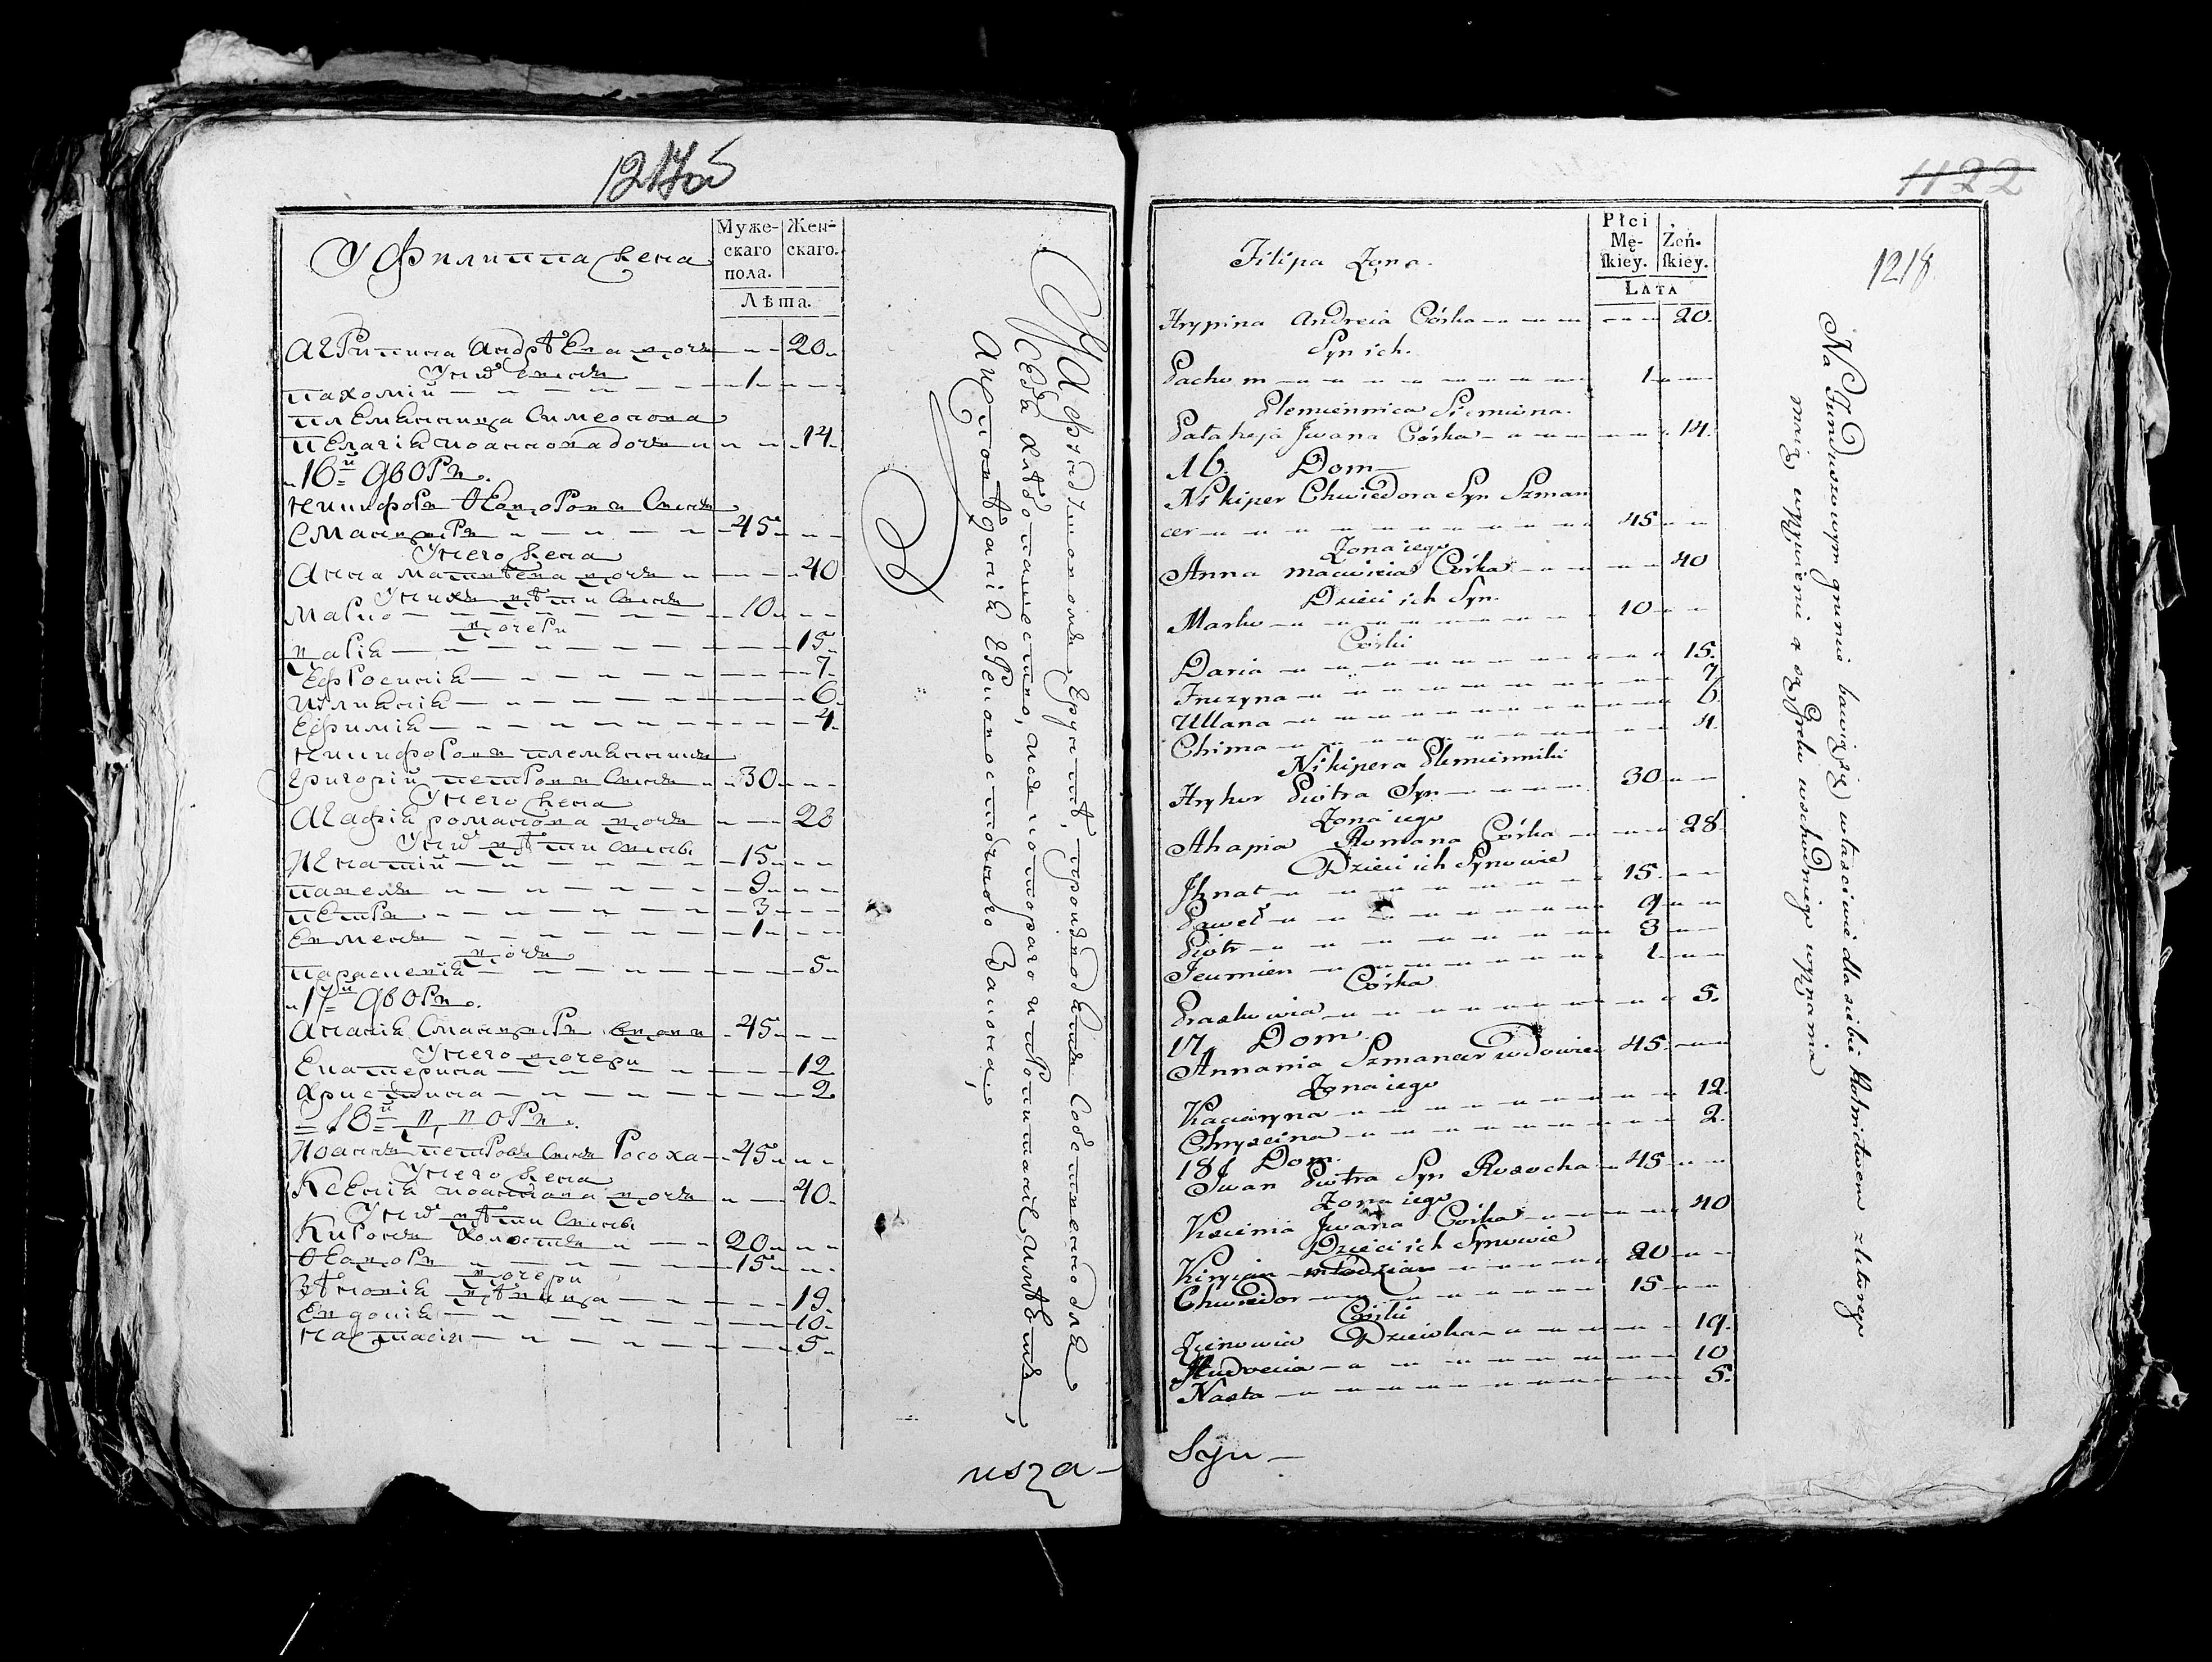 1217об
У Филиппа жена
Муже-
скаго
пола.
Жен-
скаго.
Лѣта.
Агрипина Андрѣева дочь 20
У нихъ сынъ
Пахомій 1
племянница Симеонова
Пелагія Иоаннова дочь 14
16й дворъ.
Никифоръ Ѳеодоровъ сынъ
Сманцеръ 45
У него жена
Анна Матвѣева дочь 40
У нихъ дѣти сынъ
Марко 10
дочери
Дарія 15
Ефросинія 7
Иулианія 6
Ефимія 4
Никифоровъ племянникъ
Григорій Петровъ сынъ 30
У него жена
Агафія Романова дочь 28
У нихъ дѣти сыны
Игнатій 15
Павелъ 9
Петръ 3
Евменъ 1
дочь
Параскевія 5
17й дворъ.
Ананія Сманцеръ вдовъ 45
У него дочери
Екатерина 12
Христина 2
18й дворъ.
Иоаннъ Петровъ сынъ Росоха 45
У него жена
Ксенія Иоаннова дочь 40
У нихъ дѣти сыны
Киронъ холостъ 20
Ѳеодоръ 15
дочери
Зѣновія дѣвица 19
Евдокія 10
Настасія 5
На фундушовомъ грунтѣ, производящи собственно для
себя хлѣбопашество, изъ котораго и кормитание имѣютъ,
а ... отъ владѣнія Греповосточнаго закона,
usza-
1122
1218
Filipa Żona.
Płci
Mę-
skiey.
Żeń-
skiey.
LATA
Hrypina Andreia Córka 20.
Syn ich.
Pachom 1
Plemiennica Siemiona.
Pałaheja Jwana Córka 14.
16. Dom
Nikiper Chwiedora Syn Szman
cer 45
Żona iego
Anna Maciwieia Córka 40
Dzieci ich Syn.
Marko 10
Córki
Daria 15.
Fruzyna 7
Ullana 6.
Chima 4.
Nikipera Plemiennik
Hryhor Piotra Syn 30
Żona iego
Ahapia Romana Córka 28.
Dzieci ich Synowie
Jhnat 15.
Paweł 9
Piotr 3
Jeumien 1.
Córka
Praskowia 5.
17. Dom.
Annania Szmancer wdowiec 45.
Żona iego
Kaciaryna 12.
Chryscina 2.
18. Dom.
Jwan Piotra Syn Rosocha 45
Żona iego
Ksienia Jwana Córka 40
Dzieci ich Synowie
Kiryian młodzian 20
Chwiedor 15
Córki
Zienowia Dziewka 19.
Audocia 10
Nasta 5.
Na Funduszowym gruncie bawiący się właściwie dla siebie Rolnictwem z którego
maią wyżywienie a są Greko wschodniego wyznania
Syn-